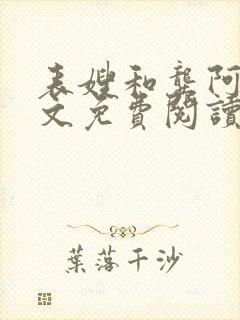 表嫂和龔阿
文免費閱讀
葉落千沙